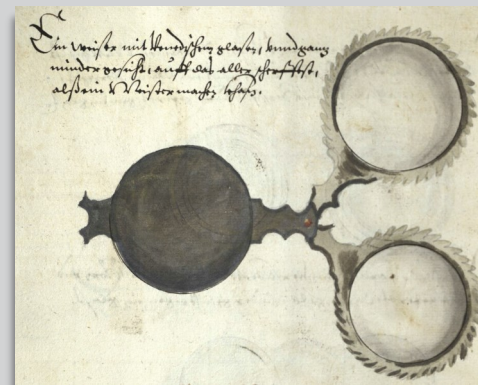 Ein weiser mit Venedischen glasen, vnnd gang
minder gesicht, auff das aller scherffest,
alß ein Meister machen